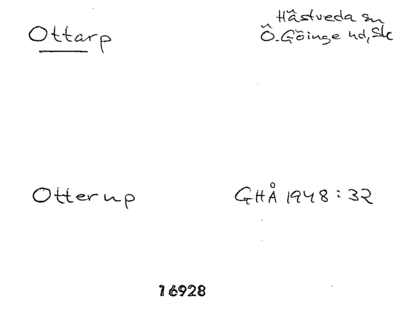 Ottarp
Hästveda sn
Ö. Göinge hd, Sk
Otterup
GHÅ 1948:32
16928